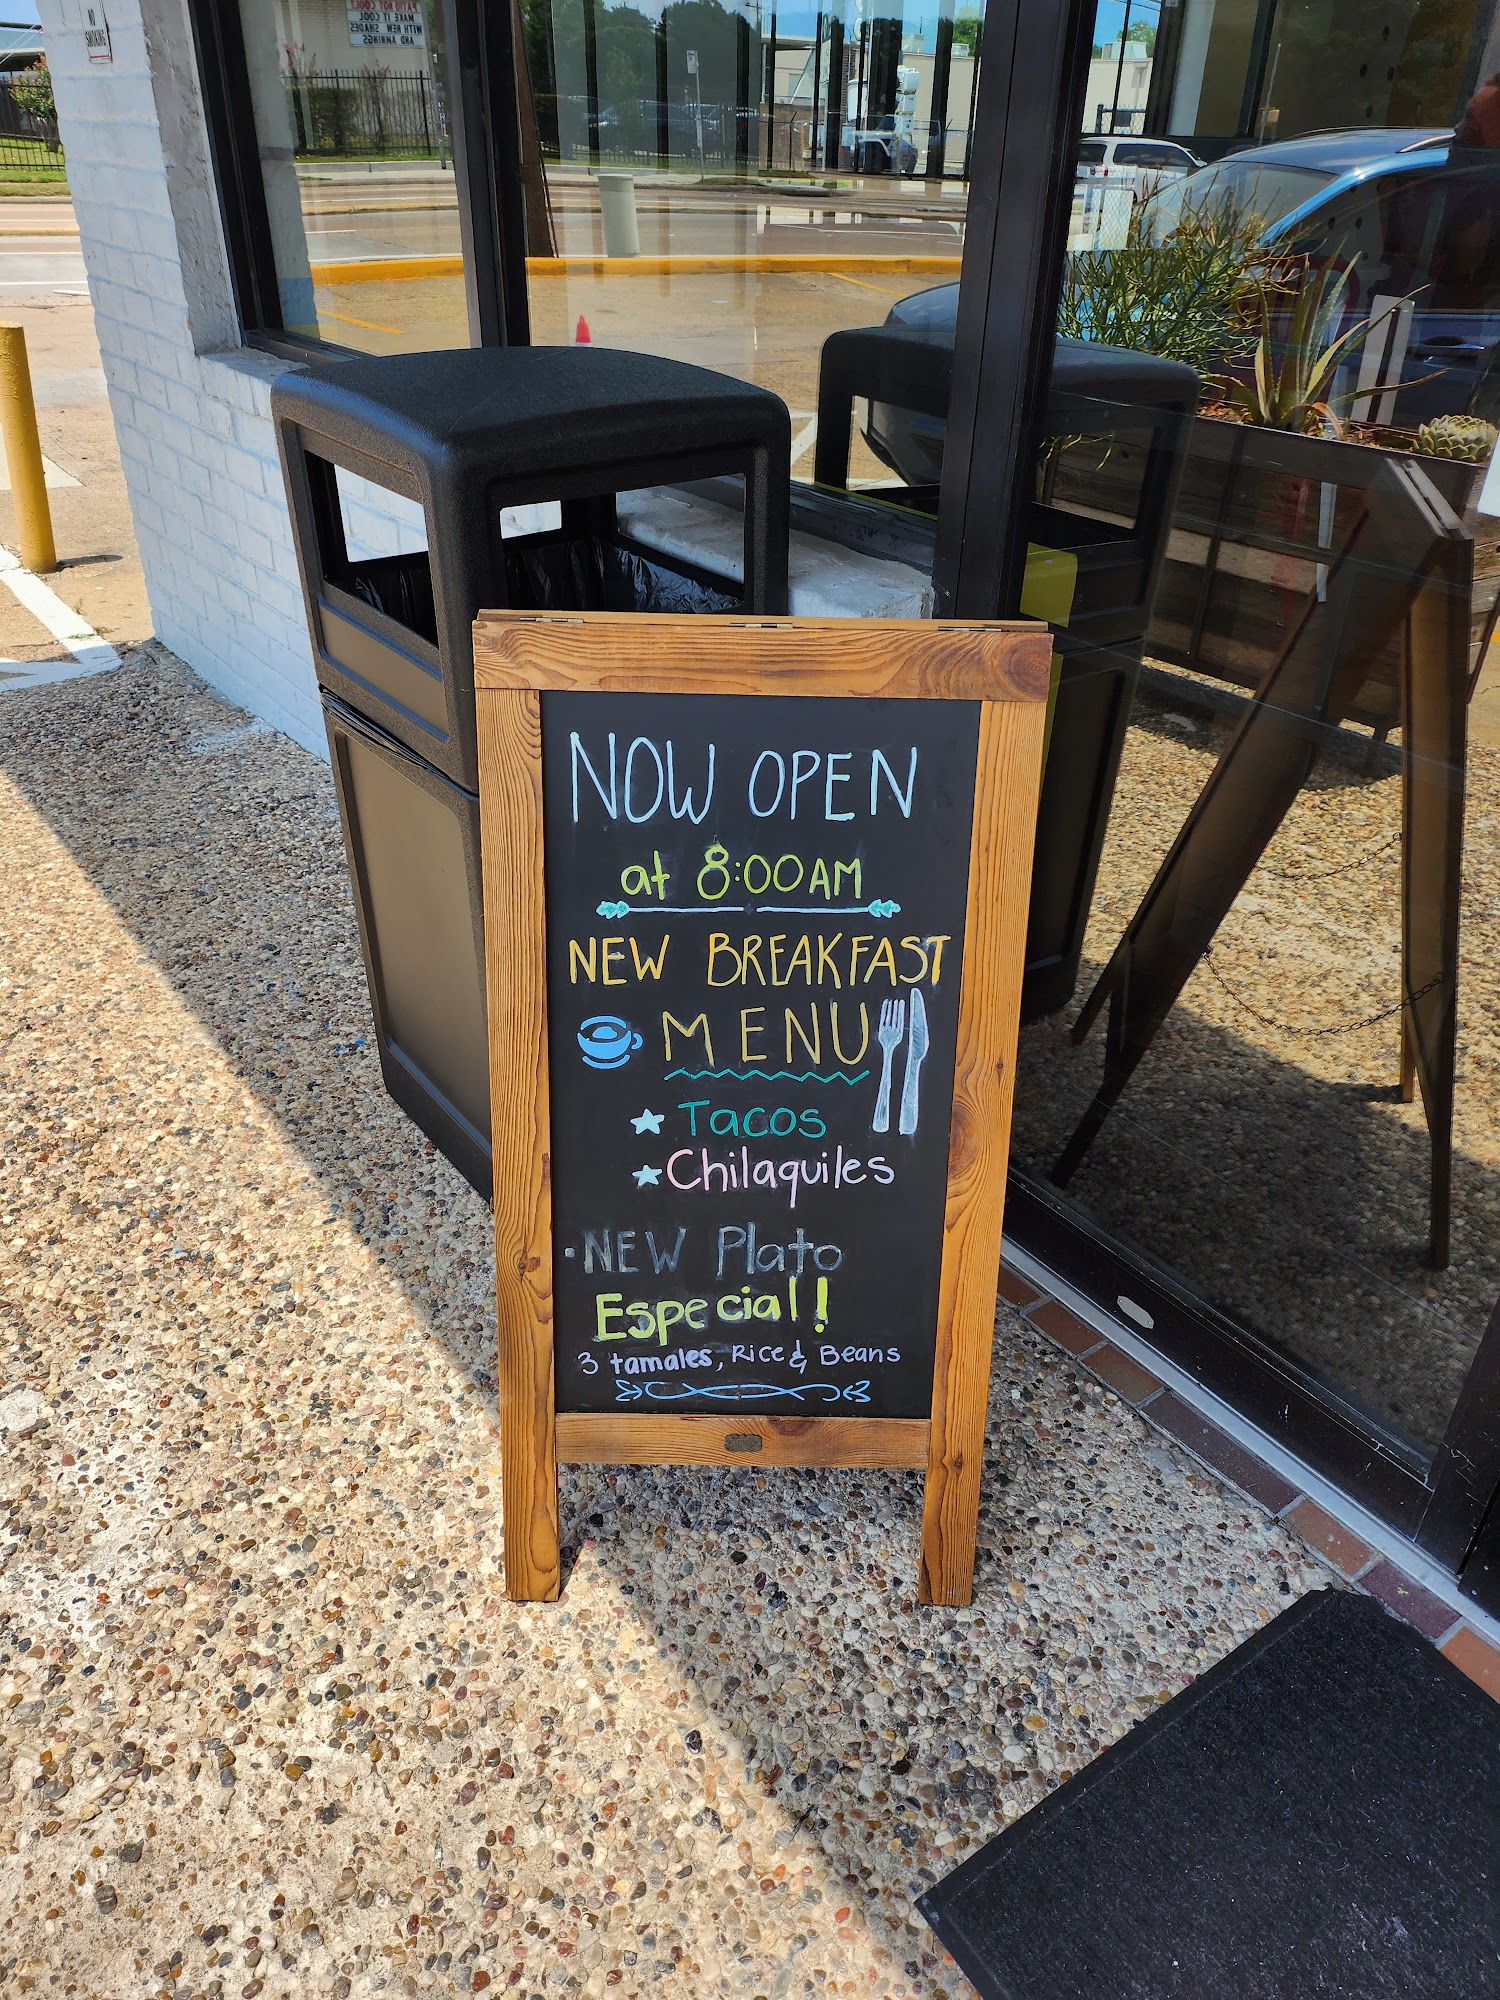 NO
SMOKING
PATIO NOT COOL?
MAKE IT COOL
WITH NEW SHADES
AND AWNINGS
NOW OPEN
at 8:00AM
NEW BREAKFAST
MENU
Tacos
Chilaquiles
·NEW Plato
Especial!
3 tamales, Rice & Beans